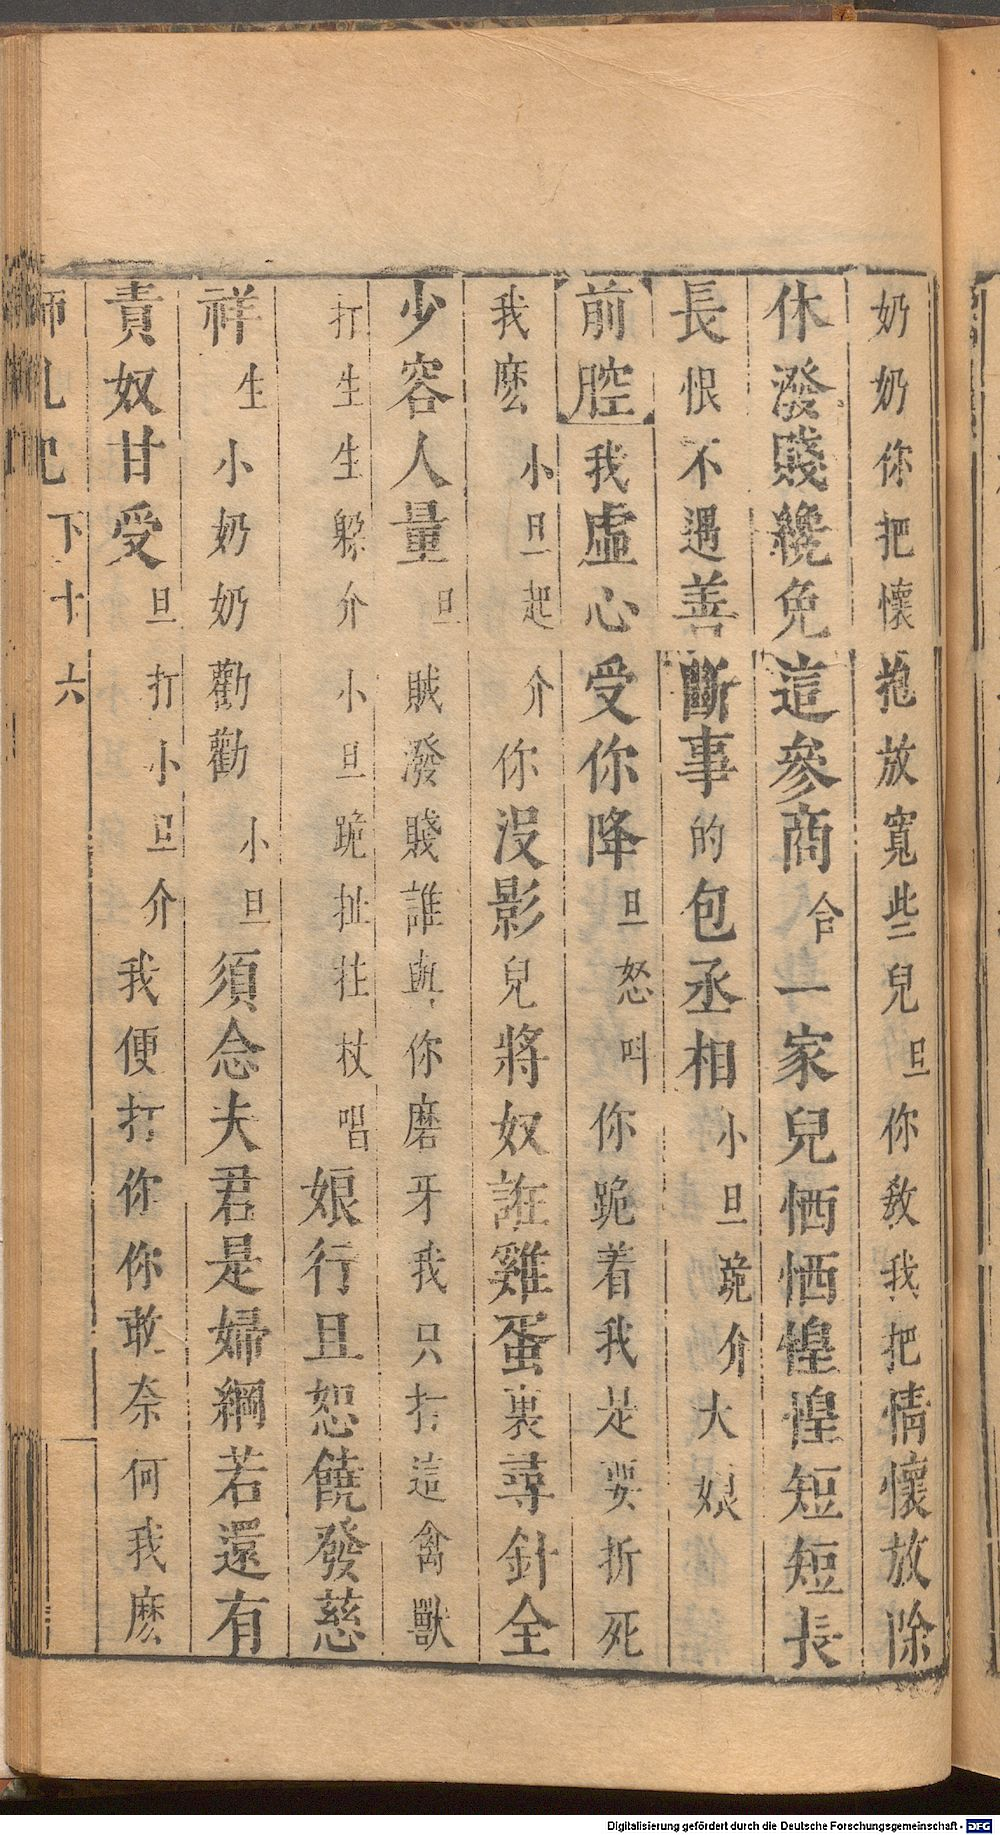 奶奶你把懷抱放寬些兒旦你教我把情懷放除
休潑賤纔免這參商合一家兒恓恓惶惶短短長
長恨不遇善斷事的包丞相小旦跪介大娘
前腔我虛心受你降旦怒叫你跪着我是要折死
我麽小旦起介你沒影兒將奴誑雞蛋裏尋針全
少容人量旦賊潑賤誰與你磨牙我只打這禽獸
打生生躲介小旦跪扯拄杖唱娘行且恕饒發慈
祥生小奶奶勸勸小旦須念夫君是婦綱若還有
責奴甘受旦打小旦介我便打你你敢奈何我麽
下十六
Digitalisierung gefördert durch die Deutsche Forschungsgemeinschaft - DFG